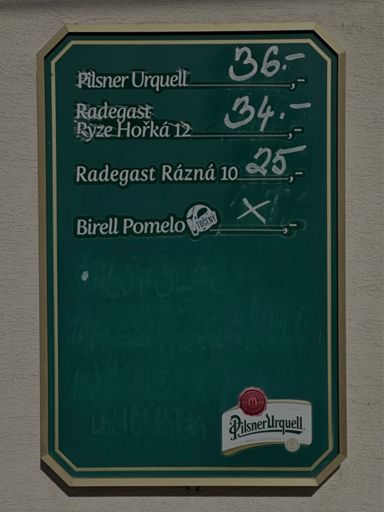 Pilsner Urquell 36.- ,-
Radegast
Ryze Hořká 12 34.- ,-
Radegast Rázná 10 25 ,-
Birell Pomelo TOČENÝ X ,-
Pilsner Urquell